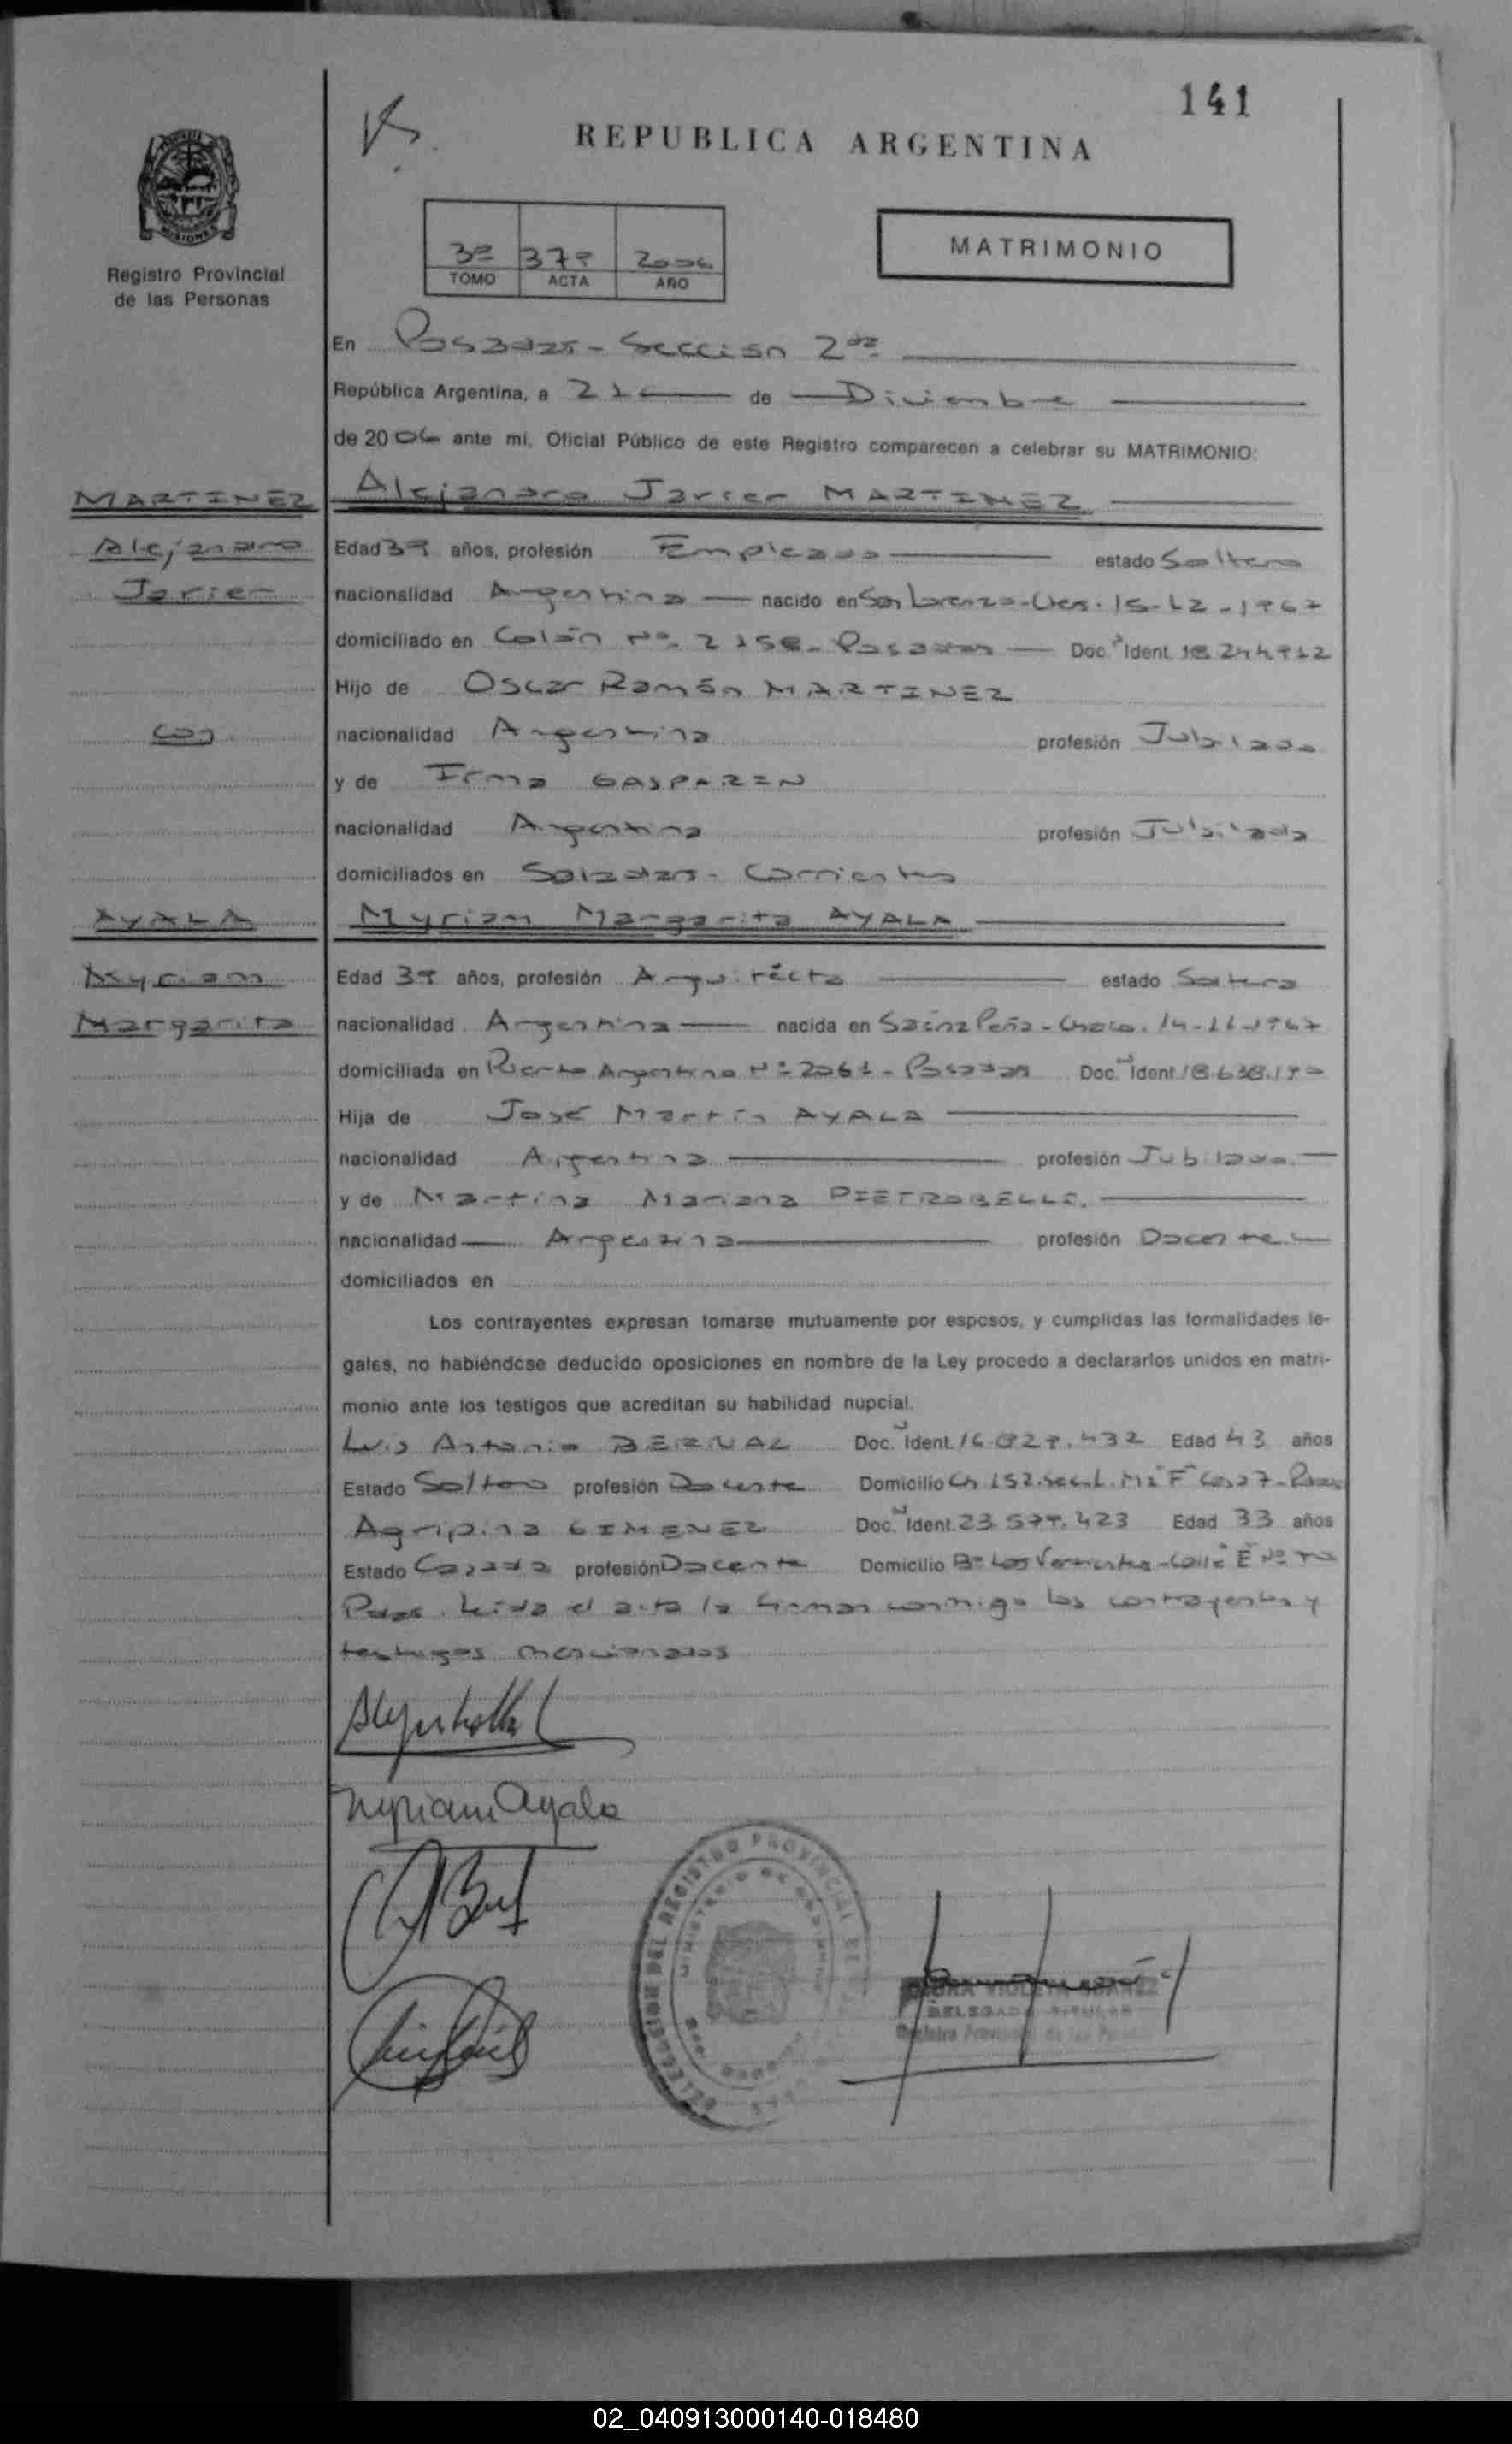 141
REPUBLICA ARGENTINA
MISIONES
Registro Provincial
de las Personas
3º 379 2006
TOMO ACTA AÑO
MATRIMONIO
En Posadas - Sección 2da
República Argentina, a 21 de Diciembre
de 2006 ante mi, Oficial Público de este Registro comparecen a celebrar su MATRIMONIO:
MARTINEZ Alejandro Javier MARTINEZ
Alejandro Edad 39 años, profesión Empleado estado Soltero
Javier nacionalidad Argentina nacido en San Lorenzo - Ctes. 15-12-1967
domiciliado en Colón Nº 2158 - Posadas Doc. Ident. 18.244.912
Hijo de Oscar Ramón MARTINEZ
con nacionalidad Argentina profesión Jubilado
y de Irma GASPARIN
nacionalidad Argentina profesión Jubilada
domiciliados en Saladas - Corrientes
AYALA Myriam Margarita AYALA
Myriam Edad 39 años, profesión Arquitecta estado Soltera
Margarita nacionalidad Argentina nacida en Saénz Peña - Chaco. 14-11-1967
domiciliada en Puerto Argentino Nº 2061 - Posadas Doc. Ident. 18.638.190
Hija de José Martín AYALA
nacionalidad Argentina profesión Jubilado
y de Martina Mariana PIETROBELLI.
nacionalidad Argentina profesión Docente
domiciliados en
Los contrayentes expresan tomarse mutuamente por esposos, y cumplidas las formalidades le-
gales, no habiéndose deducido oposiciones en nombre de la Ley procedo a declararlos unidos en matri-
monio ante los testigos que acreditan su habilidad nupcial.
Luis Antonio BERNAL Doc. Ident. 16.829.432 Edad 43 años
Estado Soltero profesión Docente Domicilio Ch 152. Sec. L. Mz "F" Casa 7 - Posas
Agripina GIMENEZ Doc. Ident. 23.579.423 Edad 33 años
Estado Casada profesión Docente Domicilio Bº Las Vertientes - Calle E Nº
Posas. Leída el acta la firman conmigo los contrayentes y
testigos mencionados
Myriam Ayala
DELEGACION DEL REGISTRO PROVINCIAL DE
MINISTERIO DE GOBIERNO
VIOLETA SUAREZ
DELEGADA TITULAR
Registro Provincial de las Personas
02_040913000140-018480